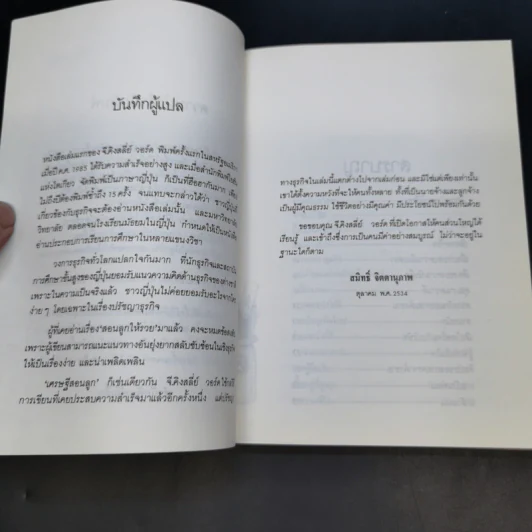 บันทึกผู้แปล
หนังสือเล่มแรกของ จี.คิงสลี่ย์ วอร์ด พิมพ์ครั้งแรกในสหรัฐอเมริกา
เมื่อปี ค.ศ. 1985 ได้รับความสำเร็จอย่างสูง และเมื่อสำนักพิมพ์
แห่งโตเกียว จัดพิมพ์เป็นภาษาญี่ปุ่น ก็เป็นที่ฮือฮากันมาก
ไม่ถึงปีต้องพิมพ์ซ้ำถึง 15 ครั้ง จนแทบจะกล่าวได้ว่า ชาวญี่ปุ่น
เกี่ยวข้องกับธุรกิจจะต้องอ่านหนังสือเล่มนั้น และมหาวิทยาลัย
วิทยาลัย ตลอดจนโรงเรียนมัธยมในญี่ปุ่น กำหนดให้เป็นหนังสือ
อ่านประกอบการเรียนการศึกษาในหลายแขนงวิชา
วงการธุรกิจทั่วโลกแปลกใจกันมาก ที่นักธุรกิจและสถาบัน
การศึกษาชั้นสูงของญี่ปุ่นยอมรับแนวความคิดด้านธุรกิจของ
เพราะในความเป็นจริงแล้ว ชาวญี่ปุ่นไม่ค่อยยอมรับอะไรจาก
ง่ายๆ โดยเฉพาะในเรื่องปรัชญาธุรกิจ
ผู้ที่เคยอ่านเรื่อง'สอนลูกให้รวย'มาแล้ว คงจะหมดข้อสงสัย
เพราะผู้เขียนสามารถแนะแนวทางอันยุ่งยากสลับซับซ้อนในเชิงธุรกิจ
ให้เป็นเรื่องง่าย และน่าเพลิดเพลิน
'เศรษฐีสอนลูก' ก็เช่นเดียวกัน จี.คิงสลี่ย์ วอร์ด ใช้
การเขียนที่เคยประสบความสำเร็จมาแล้วอีกครั้งหนึ่ง แต่ปรัชญา
ทางธุรกิจในเล่มนี้แตกต่างไปจากเล่มก่อน และมิใช่แต่เพียงเท่านั้น
เขาได้ตั้งความหวังที่จะให้คนทั้งหลาย ทั้งที่เป็นนายจ้างและลูกจ้าง
เป็นผู้มีคุณธรรม ใช้ชีวิตอย่างมีคุณค่า มีประโยชน์ไปพร้อมกันด้วย
ขอขอบคุณ จี.คิงสลี่ย์ วอร์ด ที่เปิดโอกาสให้คนส่วนใหญ่ได้
เรียนรู้ และเข้าถึงซึ่งการเป็นคนมีค่าอย่างสมบูรณ์ ไม่ว่าจะอยู่ใน
ฐานะใดก็ตาม
สมิทธิ์ จิตตานุภาพ
ตุลาคม พ.ศ. 2534